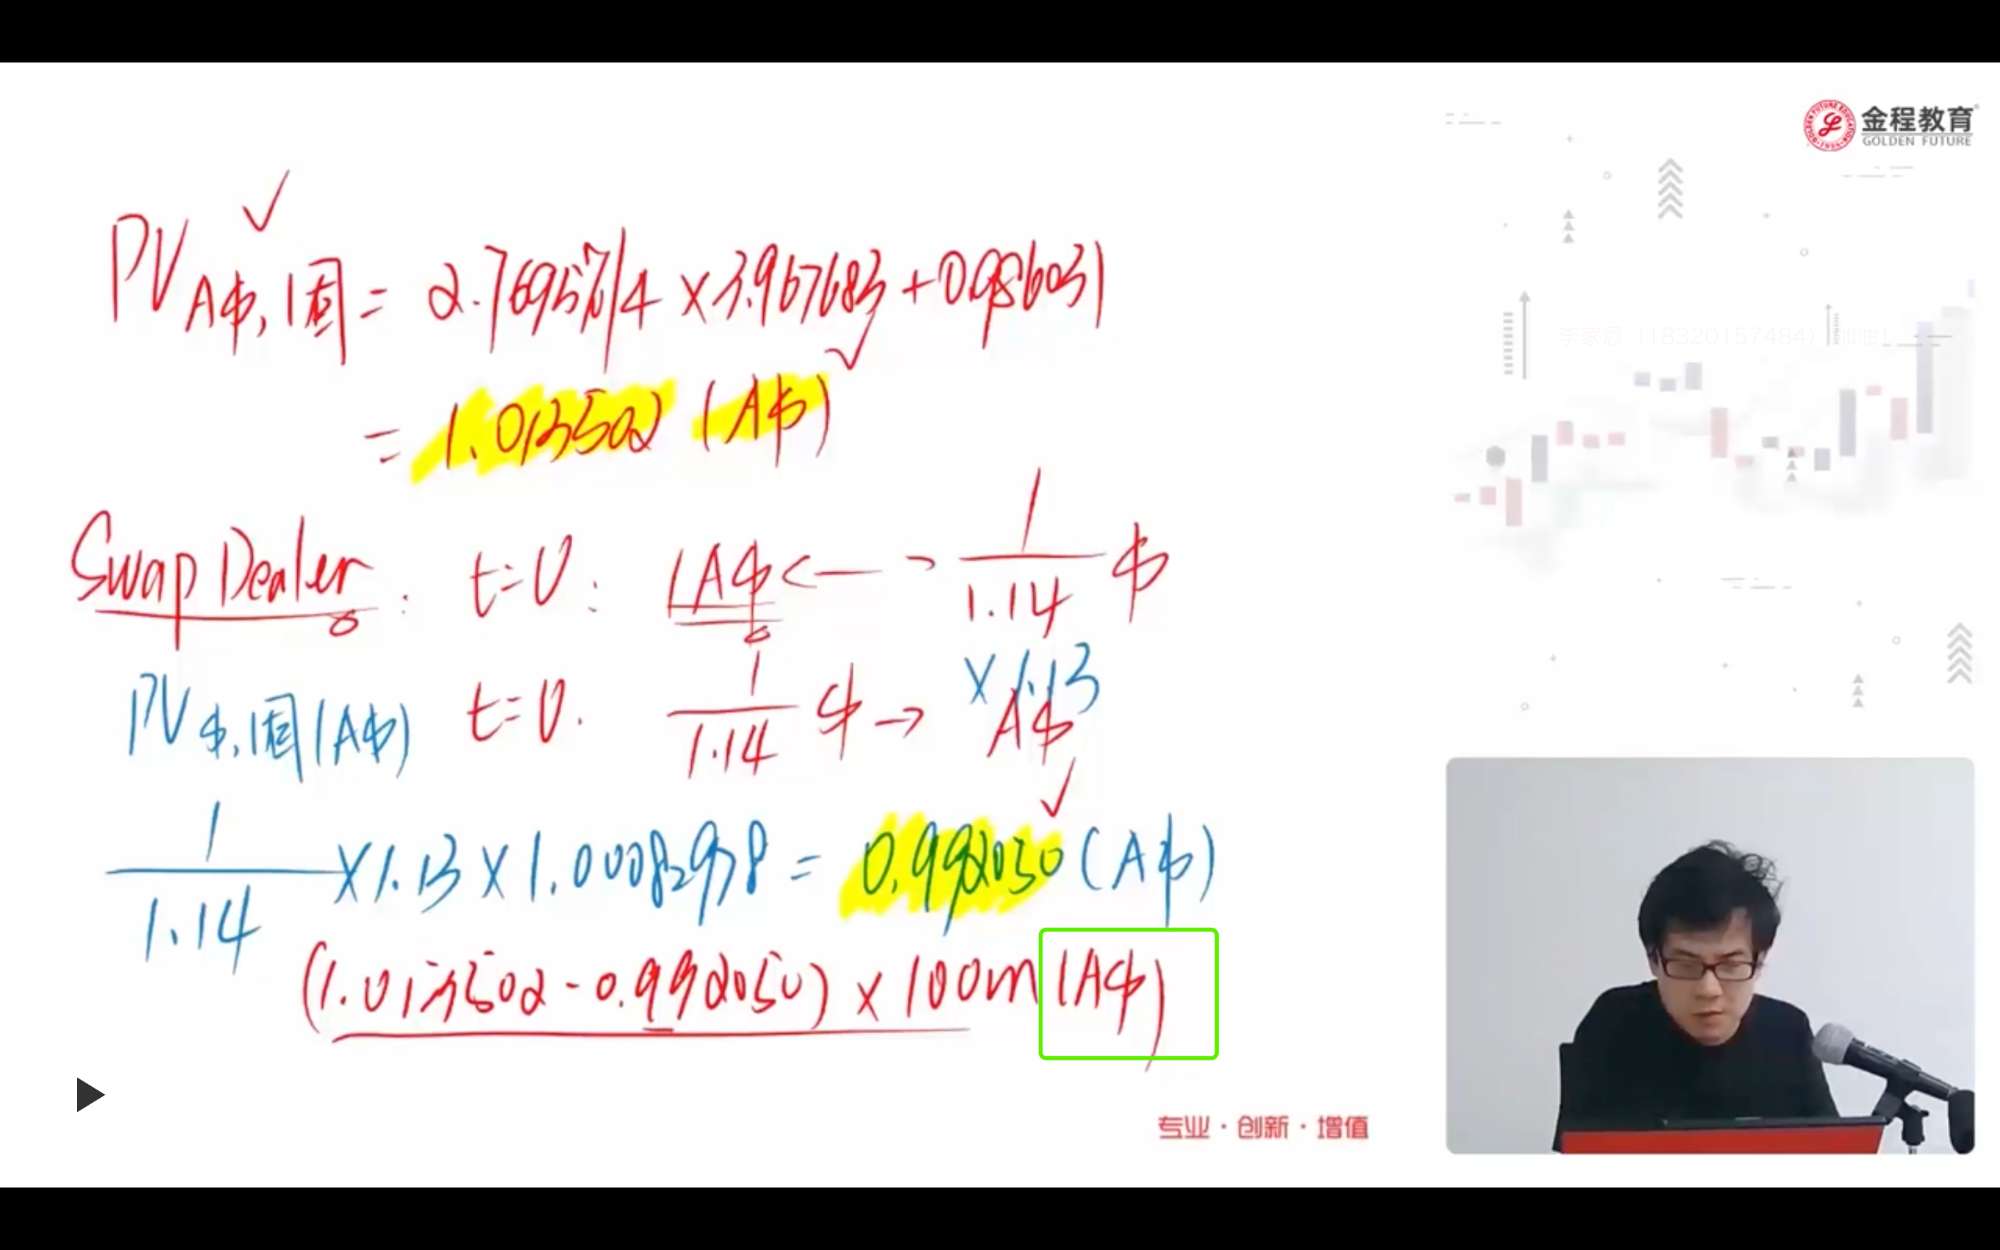 金程教育
GOLDEN FUTURE
PV A$,1固 = 2.7695%/4 × 3.967683 + 0.986031
= 1.013502 (A$)
Swap Dealer : t=0: 1A$ ← 1/1.14 $
×1.13
PV $,1固 (A$) t=0. 1/1.14 $ → A$
1/1.14 × 1.13 × 1.0008298 = 0.992050 (A$)
(1.013502 - 0.992050) × 100m (A$)
专业·创新·增值